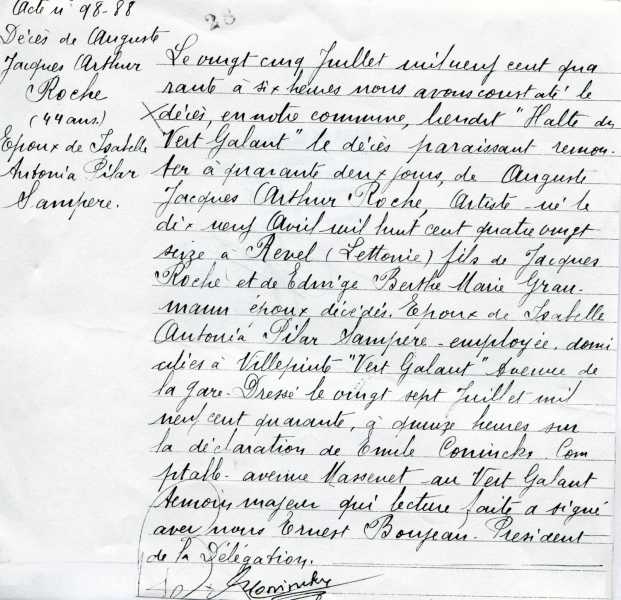 Acte n° 98-88
Décès de Auguste
Jacques Arthur
Roche
(44 ans.)
Epoux de Isabelle
Antonia Pilar
Sampere.
28
Le vingt cinq Juillet mil neuf cent qua
rante à six heures nous avons constaté le
décès, en notre commune, liendit "Halte du
Vert Galant" le décès paraissant remon-
ter à quarante deux jours, de Auguste
Jacques Arthur Roché, Artiste - né le
dix neuf Avril mil huit cent quatre vingt
seize à Revel (Lettonie) fils de Jacques
Roche et de Edwige Berthe Marie Grau-
mann époux décédés. Epoux de Isabelle
Antonia Pilar Sampere - employée, domi
ciliés à Villepinte "Vert Galant" Avenue de
la gare. Dressé le vingt sept Juillet mil
neuf cent quarante, à quinze heures sur
la déclaration de Emile Coninckx Com
ptable - avenue Massenet - au Vert Galant
témoin majeur qui lecture faite a signé
avec nous Ernest Boujeau. Président
de la Délégation.